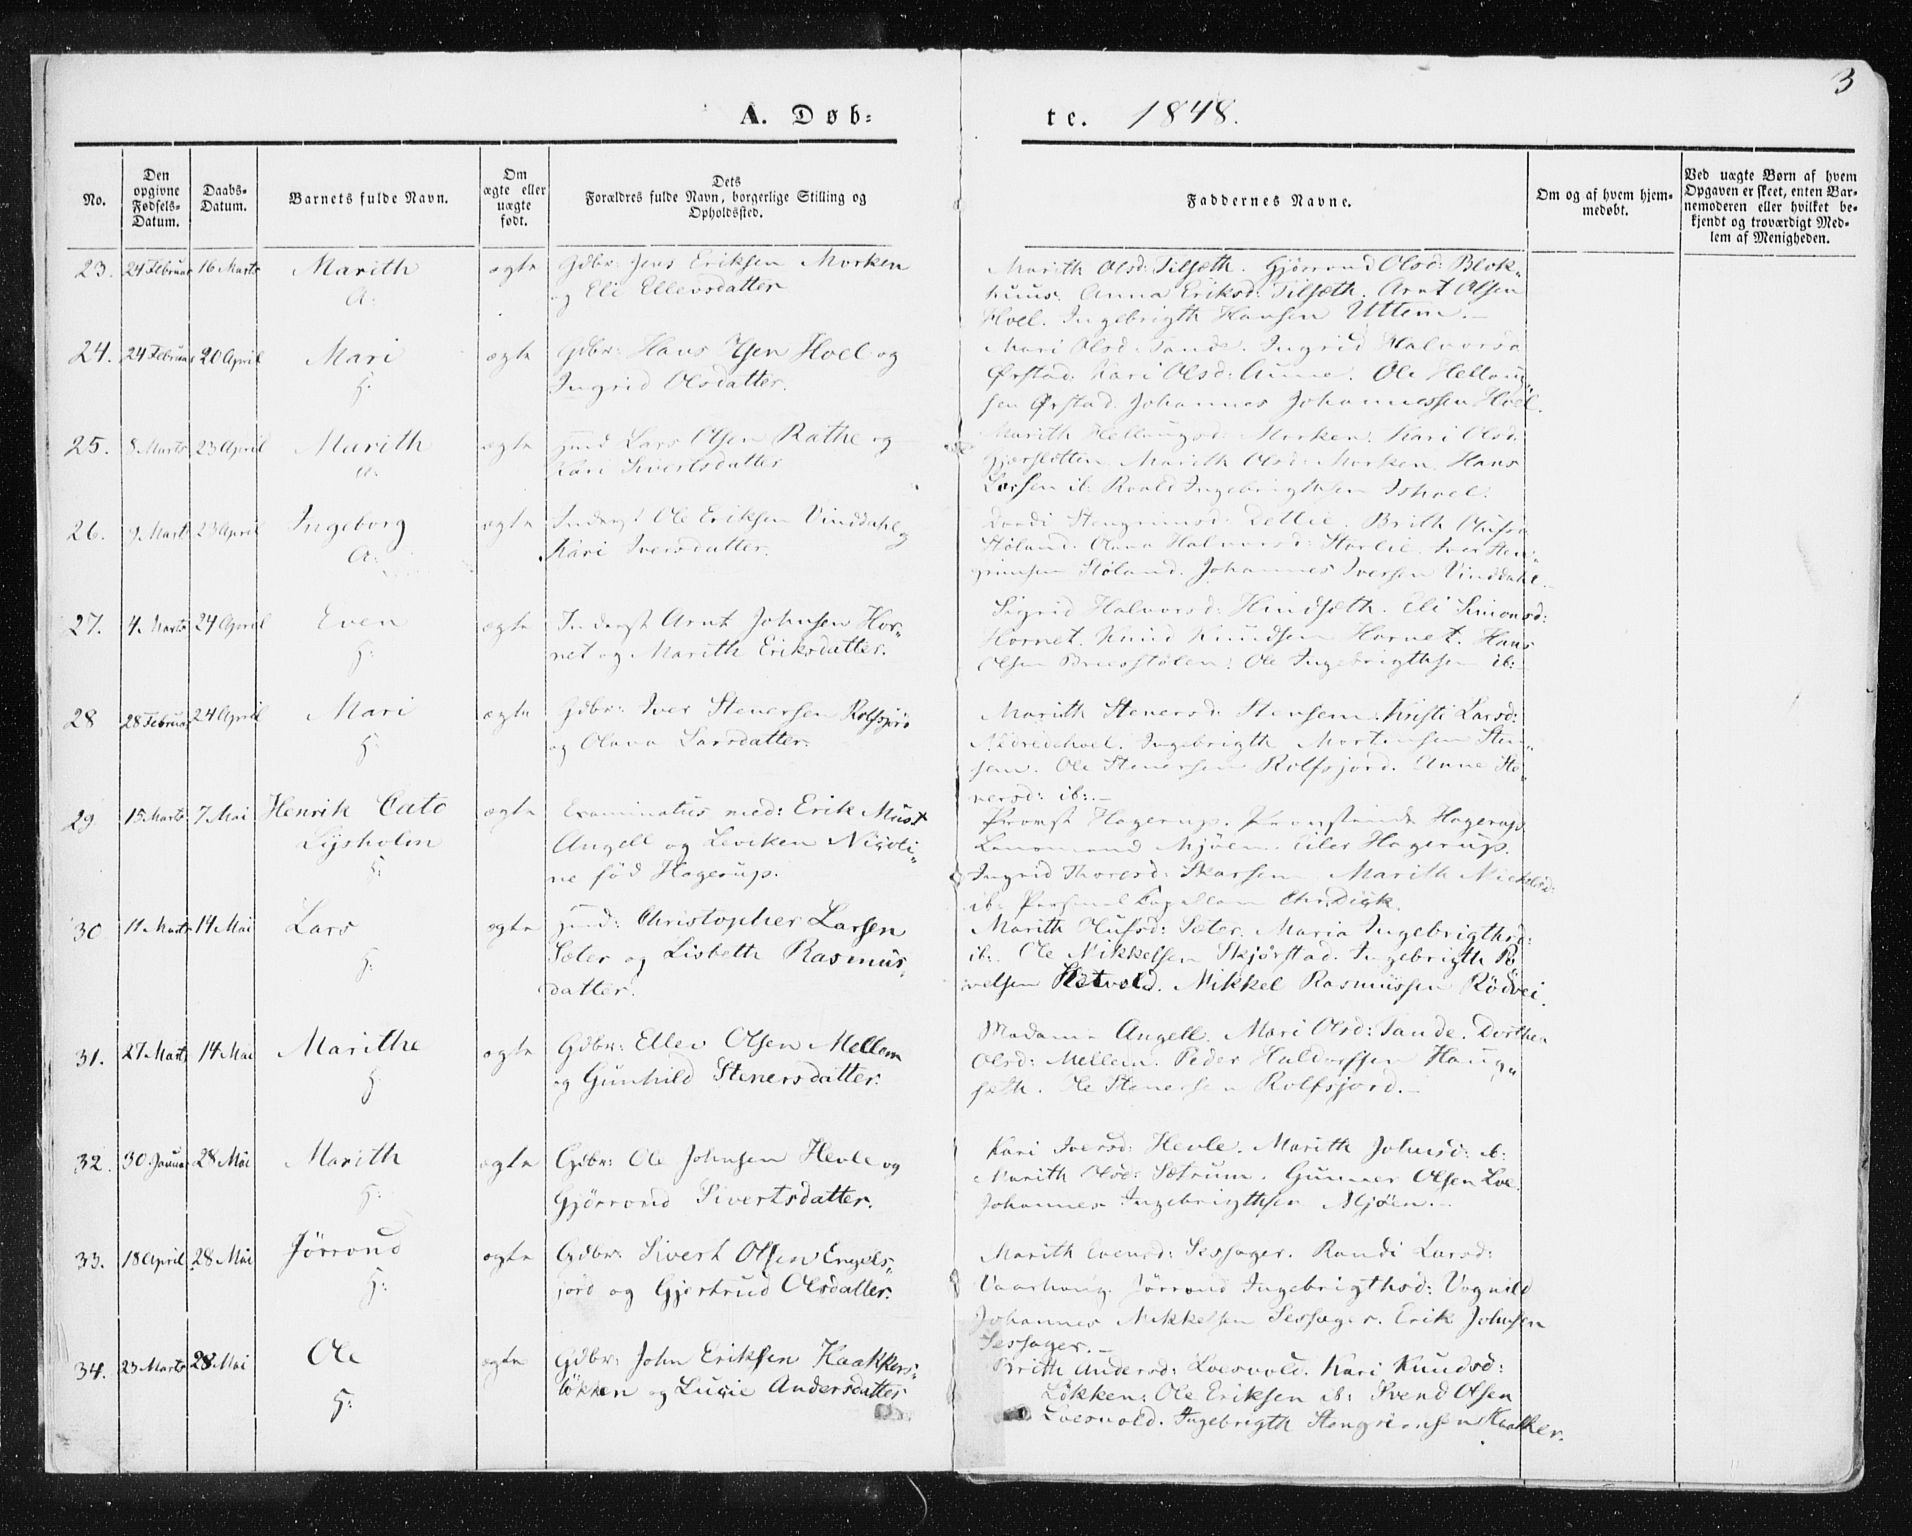 3
A. Døb- te. 1848.
No.
Den opgivne Fødsels-Datum.
Daabs-Datum.
Barnets fulde Navn.
Om ægte eller uægte født.
Dets Forældres fulde Navn, borgerlige Stilling og Opholdssted.
Faddernes Navne.
Om og af hvem hjem-medøbt.
Ved uægte Børn af hvem Opgaven er skeet, enten Bar-nemoderen eller hvilket be-kjendt og troværdigt Med-lem af Menigheden.
23. 24 Februar 16 Marts Marith ægte Gdbr: Jens Eriksen Morken
A: og Eli Ellevsdatter
Marith Olsd: Tilseth. Gjørrond Olsd: Blok-
huus. Anna Eriksd: Tilseth. Arnt Olsen
Hoel. Ingebrigth Hansen Uttem.
24. 24 Februar 20 April Mari ægte Gdbr: Hans Olsen Hoel og
H: Ingrid Olsdatter.
Mari Olsd: Tande. Ingrid Halvorsd
Ørstad. Kari Olsd: Aune. Ole Hellaug-
sen Ørstad. Johannes Johannessen Hoel.
25. 8 Marts 23 April Marith ægte Lars Olsen Rathe og
A: Kari Sivertsdatter
Marith Hellaugsd: Morken. Kari Olsd:
Marith Olsd: Morken. Hans
Larsen ib: Roald Ingebrigthsen Ishoel.
26. 9 Marts 23 April Ingeborg ægte Inderst Ole Eriksen Vinddahl og
A: Kari Iversdatter.
Dordi Stengrimsd: Dellie. Brith Olufsd
Støland. Olava Halvorsd: Storlie. Iver Sten-
grimsen Støland. Johannes Iversen Vinddahl.
27. 4 Marts 24 April Even ægte Inderst Arnt Johnsen Hor-
H: net og Marith Eriksdatter.
Sigrid Halvorsd: Hindseth. Eli Simonsd:
Hornet. Knud Knudsen Hornet. Hans
Olsen Ole Ingebrigthsen ib:
28 28 Februar 24 April Mari ægte Gdbr: Iver Stenersen Rolfsjord
H: og Olava Larsdatter.
Marith Stenersd: Stensem. Kristi Larsd:
Nedredehoel. Ingebrigth Mortensen Sten-
sem. Ole Stenersen Rolfsjord. Anne Ste-
nersd: ib:
29 15 Marts 7 Mai Henrik Cato ægte Examinatus med: Erik Must
Lysholm Angell og Leviken Nicoli-
H: ne fød Hagerup.
Provst Hagerup. Provstinde Hagerup.
Lensmand Mjøen. Eiler Hagerup.
Ingrid Thoresd: Skarsem. Marith Nickelsd:
ib: Personel Capellan Chr. Dick.
30 11 Marts 14 Mai Lars ægte Christopher Larsen
H: Sæter og Lisbeth Rasmus-
datter.
Marith Olufsd: Sæter. Maria Ingebrigthsd:
ib: Ole Nikkelsen Skjørstad. Ingebrigth Po-
velsen Sletvold. Mikkel Rasmussen Rødvei.
31. 27 Marts 14 Mai Marithe ægte Gdbr: Ellev Olsen Mellem
H: og Gunhild Stenersdatter.
Madame Angell. Mari Olsd: Tande. Dorthea
Olsd: Mellem. Peder Haldorssen Haug-
seth. Ole Stenersen Rolfsjord.
32. 30 Januar 28 Mai Marith ægte Gdbr: Ole Johnsen Hevle og
H: Gjørrond Sivertsdatter.
Kari Iversd: Hevle. Marith Johnsd: ib:
Marith Olsd: Sætrum. Gunner Olsen Loe
Johannes Ingebrigthsen Mjøen.
33. 18 April 28 Mai Jørrond ægte Gdbr: Sivert Olsen Engels-
H: jord og Gjertrud Olsdatter.
Marith Evensd: Sessager. Randi Larsd:
Vaarhaug. Jørrond Ingebrigthsd: Vognild
Johannes Mikkelsen Sessager. Erik Johnsen
Sessager.
34. 23 Marts 28 Mai Ole ægte Gdbr: John Eriksen Kaakkers-
H: løkken og Lucie Andersdatter
Brith Andersd: Loesvold. Kari Knudsd:
Løkken: Ole Eriksen ib: Svend Olsen
Loesvold. Ingebrigth Stengrimsen Kaakker.